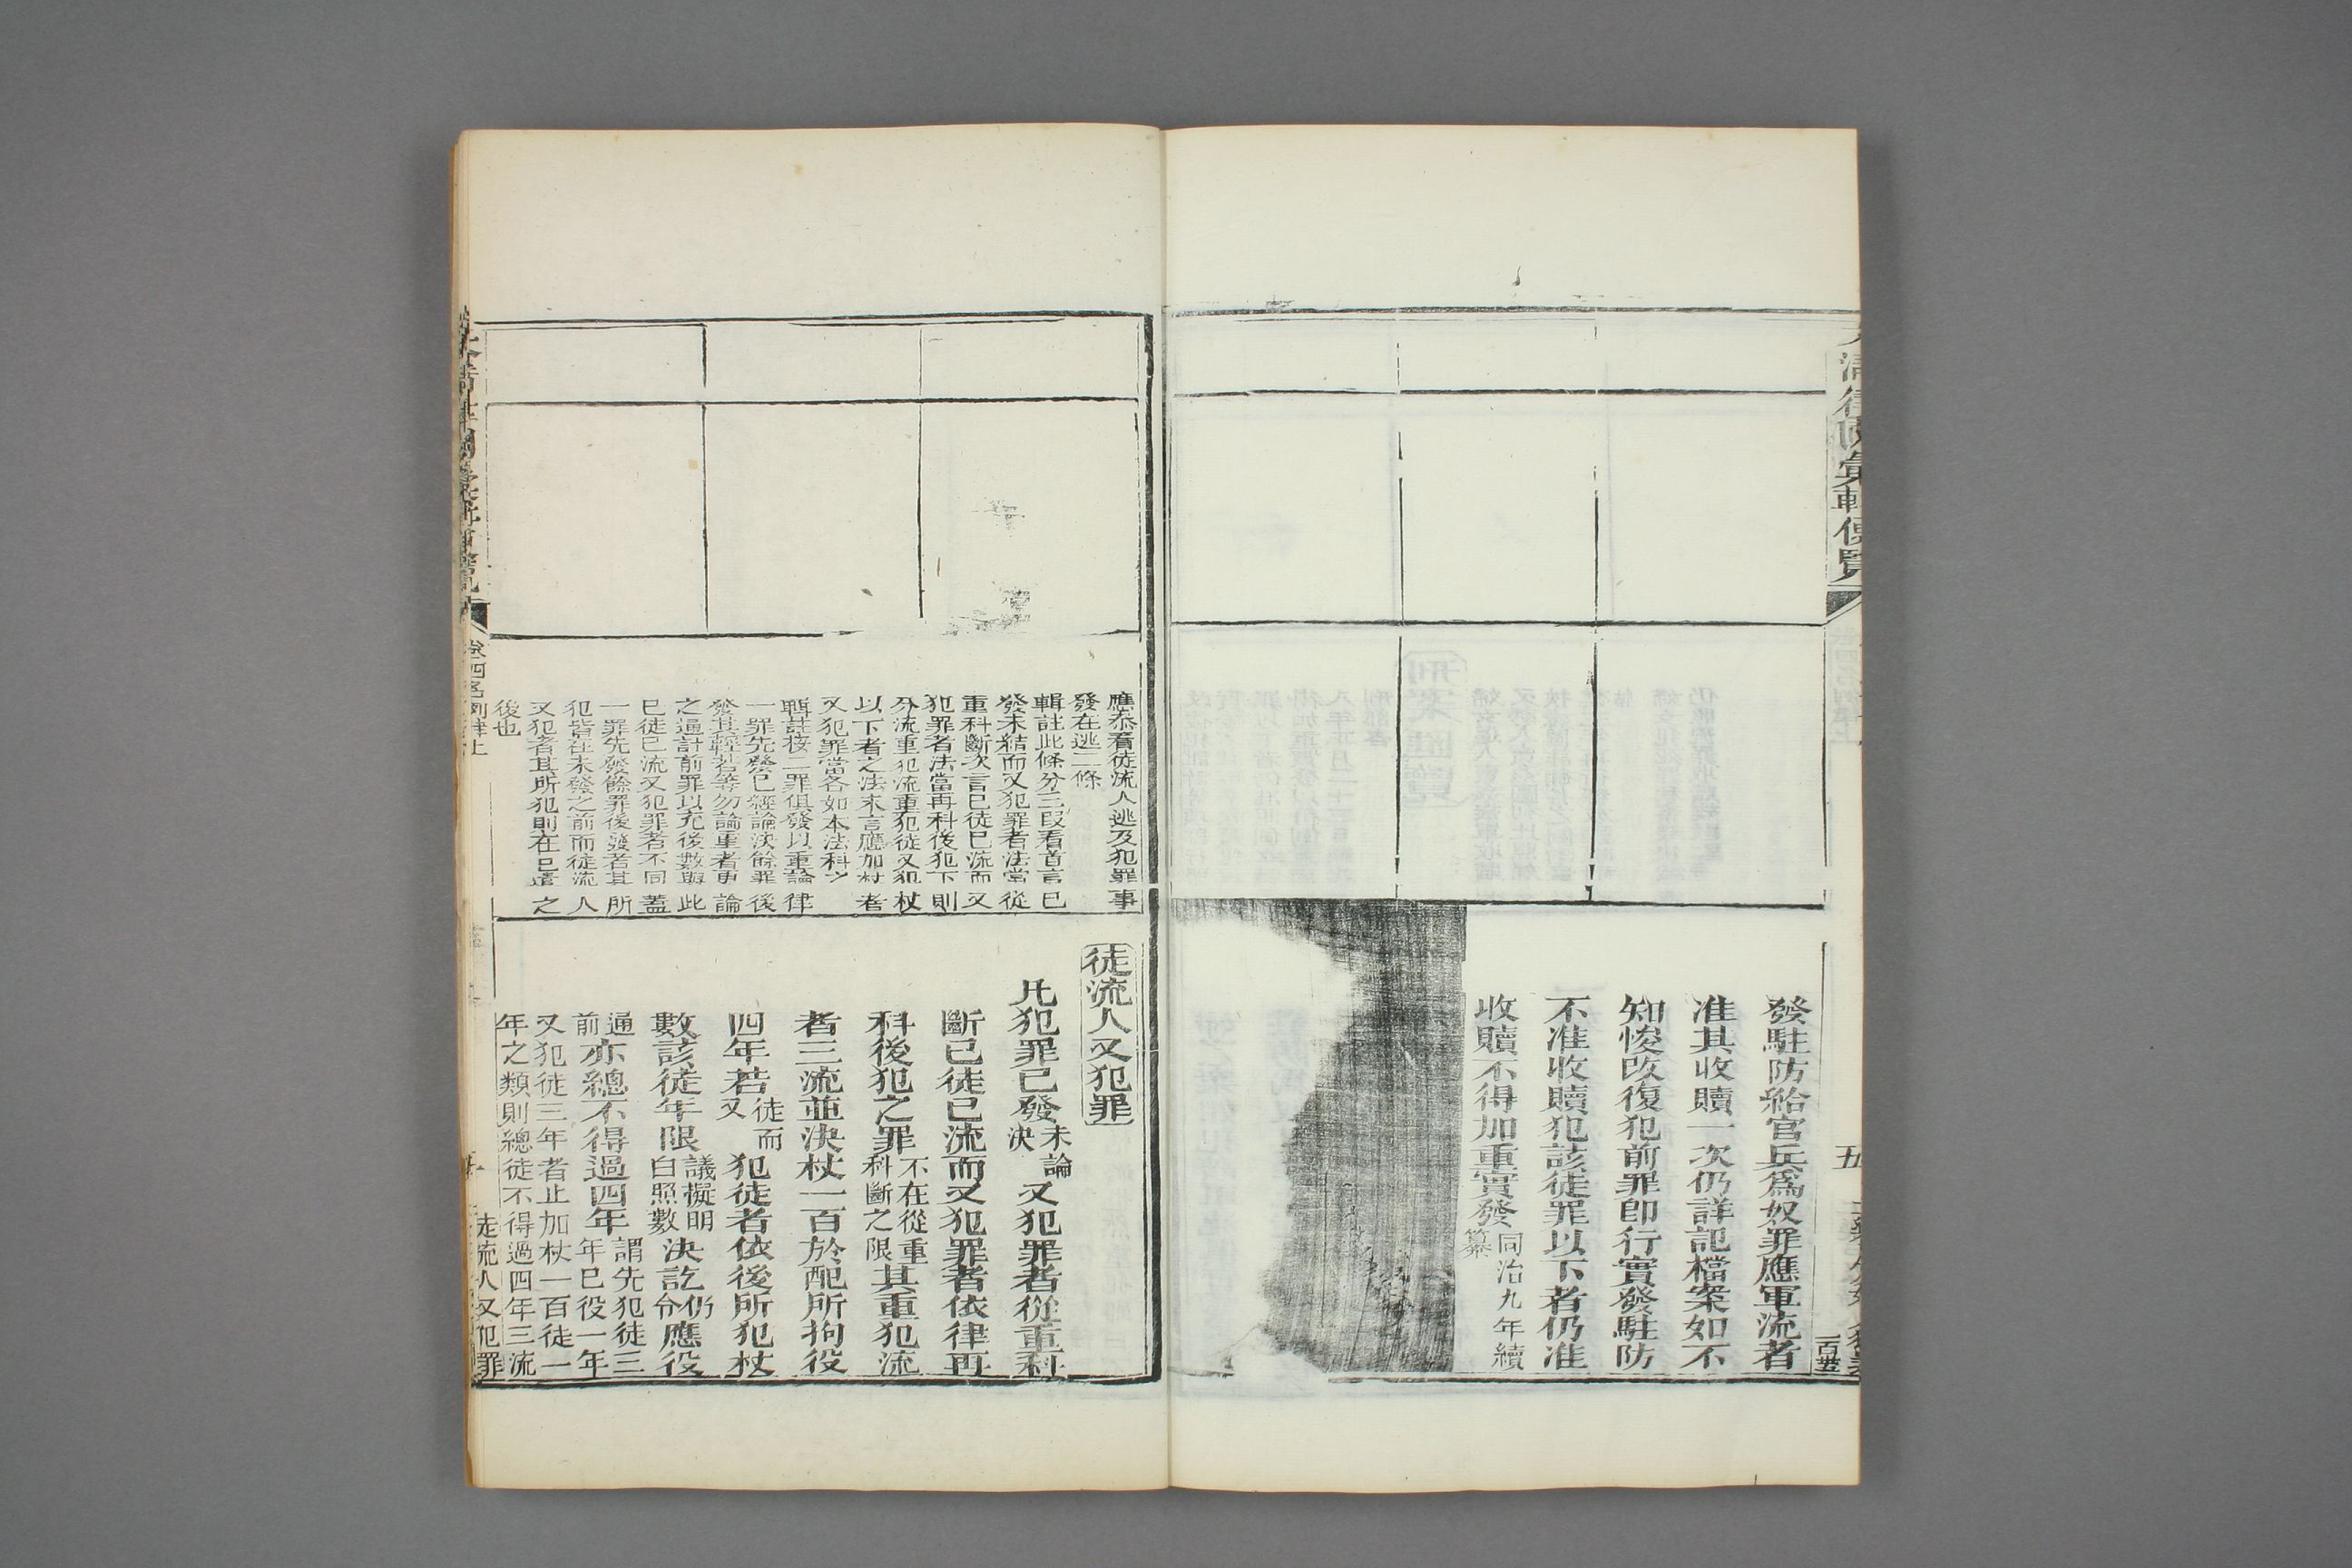 發駐防給官兵爲奴罪應軍流者
准其收贖一次仍詳記檔案如不
知悛改復犯前罪卽行實發駐防
不准收贖犯該徒罪以下者仍准
收贖不得加重實發同治九年續
纂
應叅看徒流人逃及犯罪事
發在逃二條
輯註此條分三段看首言已
發未結而又犯罪者法當從
重科斷次言已徒已流而又
犯罪者法當再科後犯下則
分流重犯流重犯徒又犯杖
以下者之法末言應加杖者
又犯罪當各如本法科之
輯註按二罪俱發以重論律
一罪先發已經論決餘罪後
發其輕若等勿論重者更論
之通計前罪以充後數與此
已徒已流又犯罪者不同蓋
一罪先發餘罪後發者其所
犯皆在未發之前而徒流人
又犯者其所犯則在已遣之
後也
徒流人又犯罪
凡犯罪已發未論
決又犯罪者從重科
斷已徒已流而又犯罪者依律再
科後犯之罪不在從重
科斷之限其重犯流
者三流並決杖一百於配所拘役
四年若徒而
又犯徒者依後所犯杖
數該徒年限議擬明
白照數決訖仍
令應役
通
前亦總不得過四年謂先犯徒三
年已役一年
又犯徒三年者止加杖一百徒一
年之類則總徒不得過四年三流
卷四名例律上
徒流人又犯罪